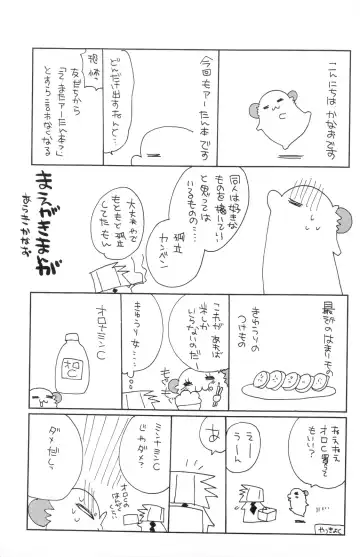 こんにちは かなおです
今回もアーたん本です
どんだけ出すねんと…
現に
友だちから
「え、またアーたん本?」
とすら言われなくなる
同人は好きな
ものを描いていい
と思っては
いるものの…
孤立
カンペン
大丈夫です
もともと孤立
してたもん
まえがきまんが
最近のはまりもの
きゅうりの
つけもの
これがあれば
米しか
いらないのだ
きゅうり女…
オロナミンC
オロC
ねえねえ
オロC買って
もいい?
えー
うーん
あ
オロCの
ミンナミンC
じゃダメ?
ダメだし
やっきょく